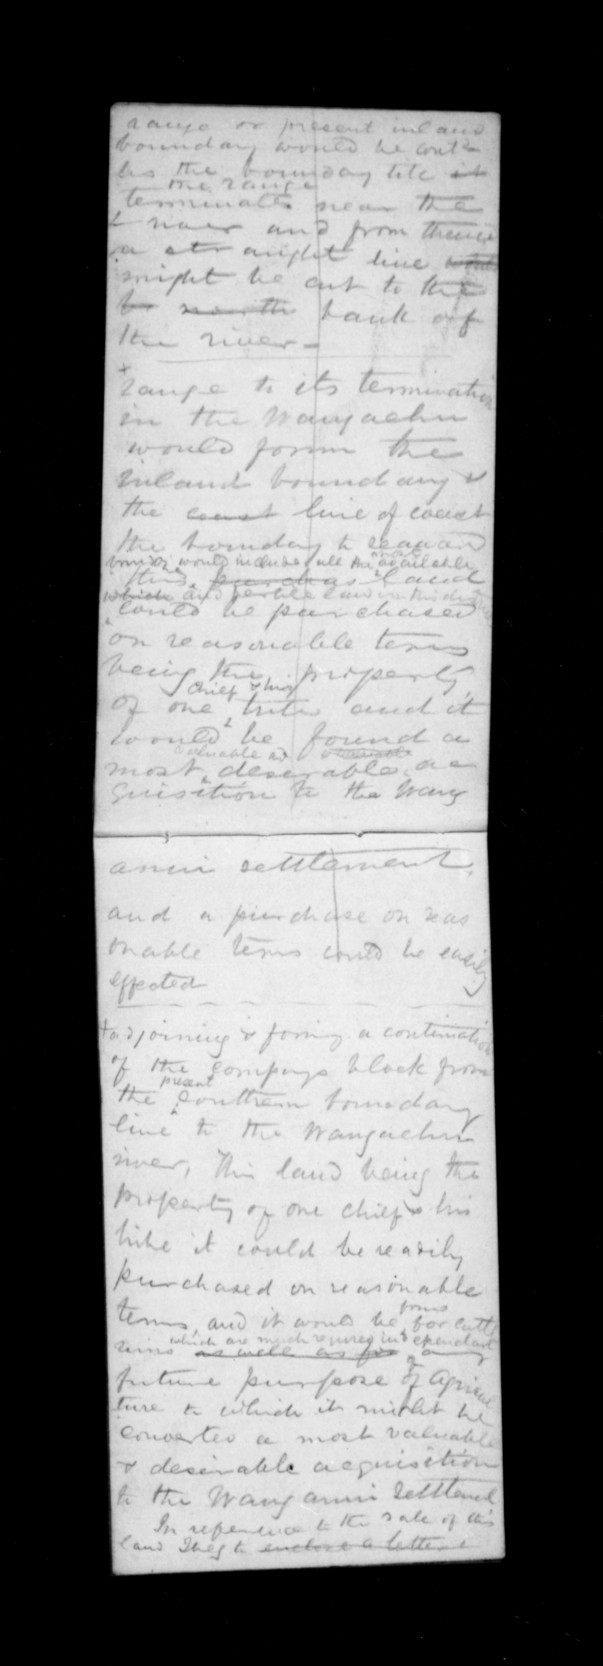 range or present inland
boundary would be cont
as the boundary till it
the range
terminates near the
river and from thence
a straight line would
might be cut to the
to north bank of
the river -
x
range to its termination
in the Wangaehu
would form the
inland boundary &
the coast line of coast
the boundary to seaward
would include all the available
this purchase land
which and fertile land in this
could be purchased
on reasonable terms
being the property
chief & his
of one tribe and it
would be found a
valuable and valuable
most desirable ac
quisition to the Wang
anui settlement.
and a purchase on reas
onable terms could be easily
effected
+adjoining & forming a continuation
of the Companys block from
present
the southern boundary
line to the Wangaehu
river, This land being the
property of one chief & his
tribe it could be readily
purchased on reasonable
terms, and it would be for cattle
found
runs as well as for any
which are much required independent
future purpose of Agricul
ture to which it might be
converted a most valuable
& desirable acquisition
to the Wanganui Settlement
In reference to the sale of this
land I beg to enclose a letter